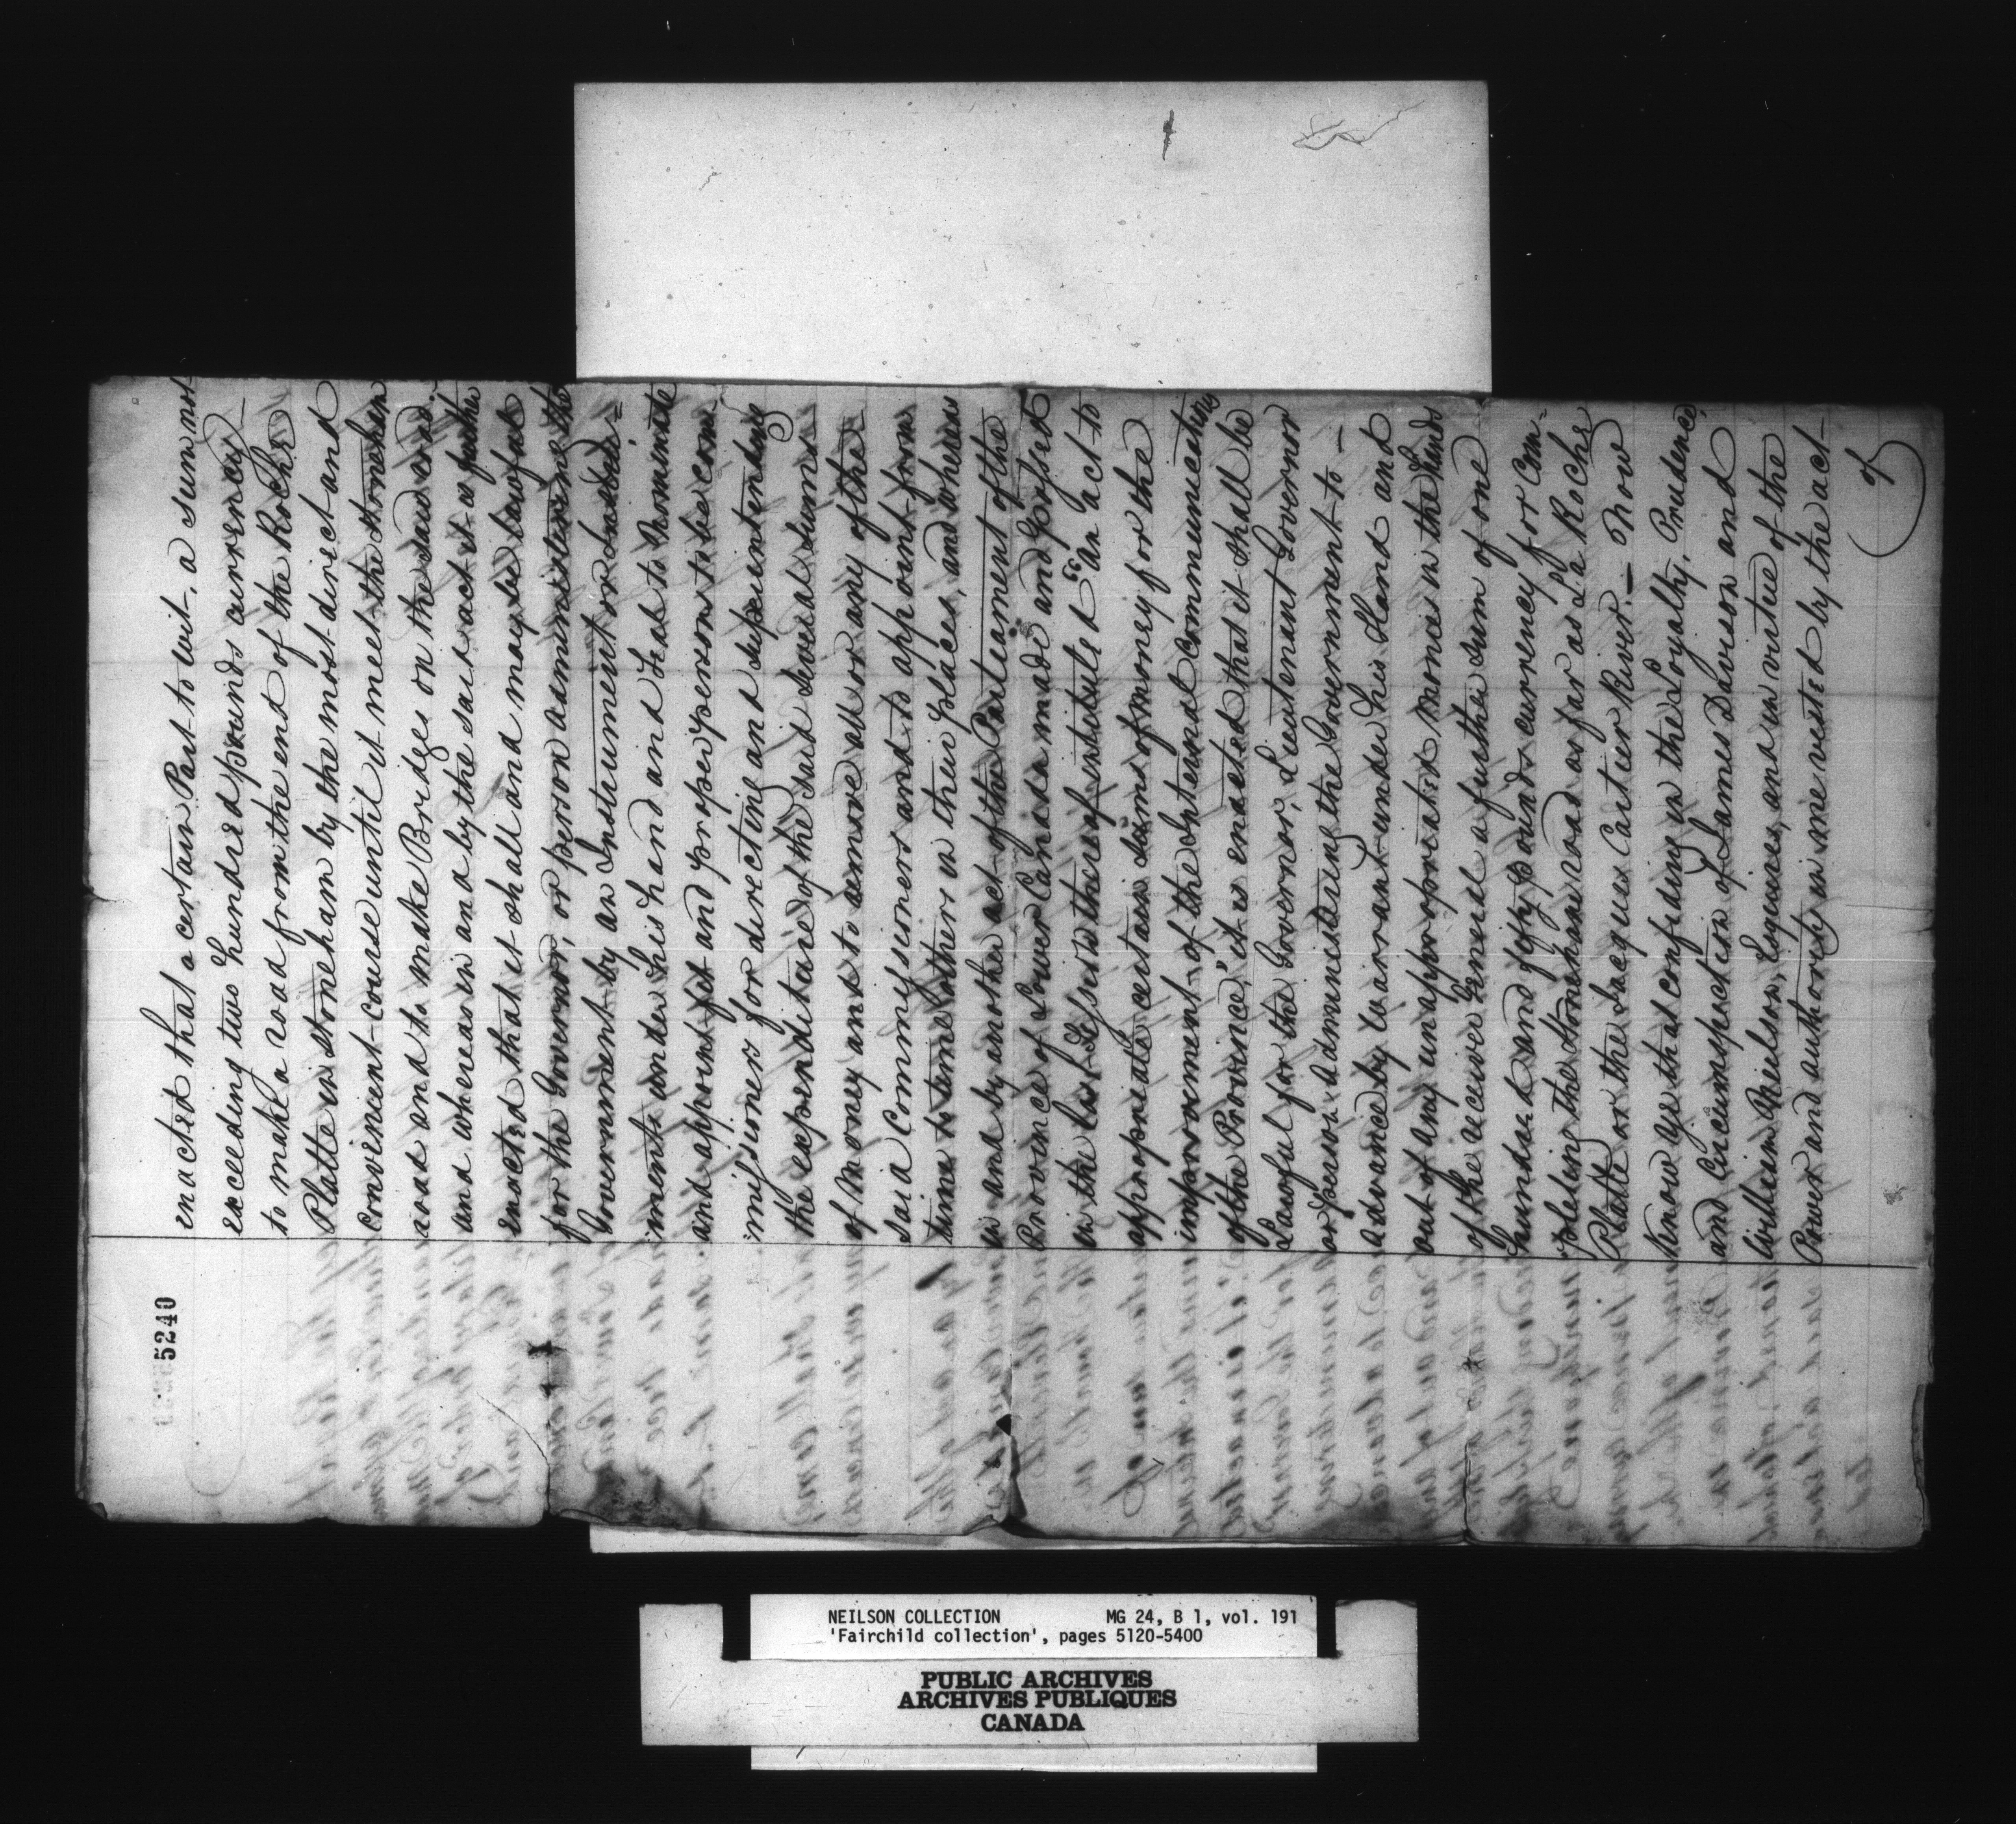 5240
enacted that a certain Part to wit, a sum not
exceeding two hundred pounds currency
to make a road from the end of the Roche
Platte in Stoneham by the most direct and
convenient course until it meet the Stoneham
road and to make Bridges on the said road
and whereas in and by the said act it is further
enacted that it shall and may be lawful
for the Governor, or person administering the
Government by an Instrument or Instru=
ments under his hand and Seal to Nominate
and appoint fit and proper persons to be com-
missioners for directing and superintending
the expenditure of the said several sums
of Money and to remove all or any of the
said Commissioners and to appoint from
time to time others in their places, and whereas
in and by another act of the Parliament of the
Province of Lower Canada made and passed
in the last Session thereof intituled "An act to
appropriate certain sums of money for the
improvement of the Internal Communications
of the Province," it is enacted that it shall be
Lawful for the Governor, Lieutenant Governor
or person administering the Government to —
advance by Warrant under his Hand and
out of any unappropriated Monies in the hands
of the receiver General a further sum of one
hundred and fifty pounds currency for Com=
pleting the Stoneham road as far as La Roche
Platte or the Jacques Cartier River. — Now
Know ye that confiding in the Loyalty, Prudence,
and Circumspection of James Davison and
William Neilson, Esquires, and in virtue of the
Power and authority in me vested by the act
of
NEILSON COLLECTION MG 24, B 1, vol. 191
'Fairchild collection', pages 5120-5400
PUBLIC ARCHIVES
ARCHIVES PUBLIQUES
CANADA